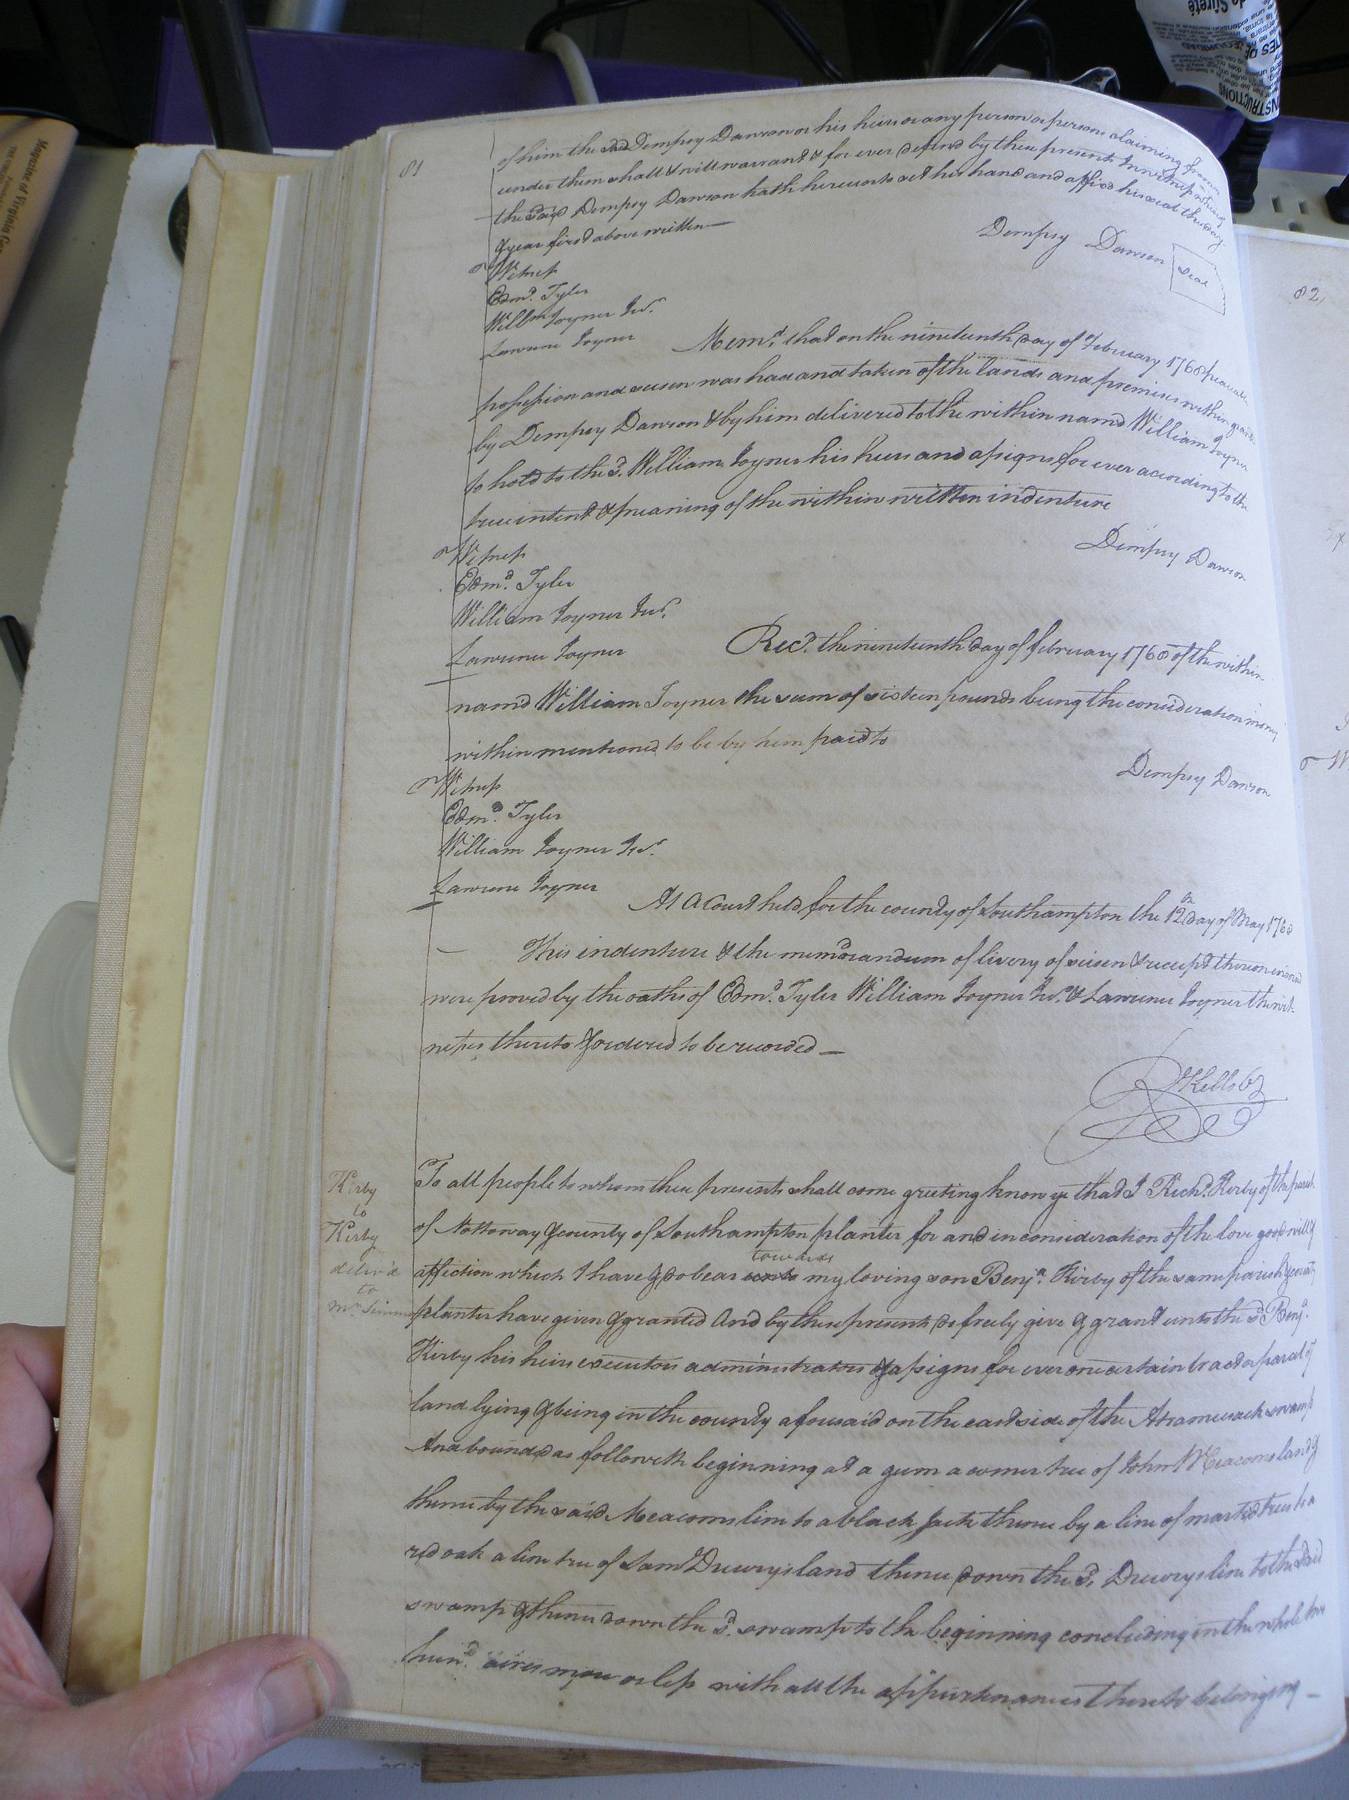 81
of him the said Dempsey Dawson or his heirs or any person or persons claiming from or
under them shall & will warrant & for ever defend by these presents In witness whereof
the said Dempsey Dawson hath hereunto set his hand and affixd his seal the day
& year first above written
Dempsey Dawson Seal
Witness
Edmd. Tyler
Willm Joyner Jur.
Lawrence Joyner
Memd. that on the nineteenth day of February 1768 peaceable
possession and seisen was had and taken of the lands and premises within granted
by Dempsey Dawson & by him delivered to the within namd William Joyner
to hold to the sd. William Joyner his heirs and assigns for ever according to the
true intent & meaning of the within written indenture
Dempsey Dawson
Witness
Edmd. Tyler
William Joyner Jur.
Lawrence Joyner
Recd. the nineteenth day of february 1768 of the within
namd William Joyner the sum of sixteen pounds being the consideration money
within mentioned to be by him paid to
Dempsey Dawson
Witness
Edmd. Tyler
William Joyner Jur.
Lawrence Joyner
At a Court held for the county of Southampton the 12th day of May 1768
This indenture & the memorandum of livery of seisen & receipt thereon
were proved by the oaths of Edmd. Tyler William Joyner Jur. & Lawrence Joyner the wit
nesses thereto & ordered to be recorded
Kirby
to
Kirby
deliv'd
to
Mr
To all people to whom these presents shall come greeting know ye that I Richd. Kirby of the parish
of Nottoway & county of Southampton planter for and in consideration of the love good will &
affection which I have & do bear unto towards my loving son Benja. Kirby of the same parish & county
planter have given & granted And by these presents do freely give & grant unto the sd. Benja.
Kirby his heirs executors administrators & assigns for ever one certain tract or parcel of
land lying & being in the county aforesaid on the east side of the Atamusack swamp
And bounded as followeth beginning at a gum a corner tree of John Meacoms land &
thence by the said Meacoms line to a black Jack thence by a line of markd trees to a
red oak a line tree of Saml Drewrys land thence down the sd. Drewrys line to the said
swamp & thence down the sd. swamp to the beginning concluding in the whole two
hund. acres more or less with all the appurtenances thereto belonging
82